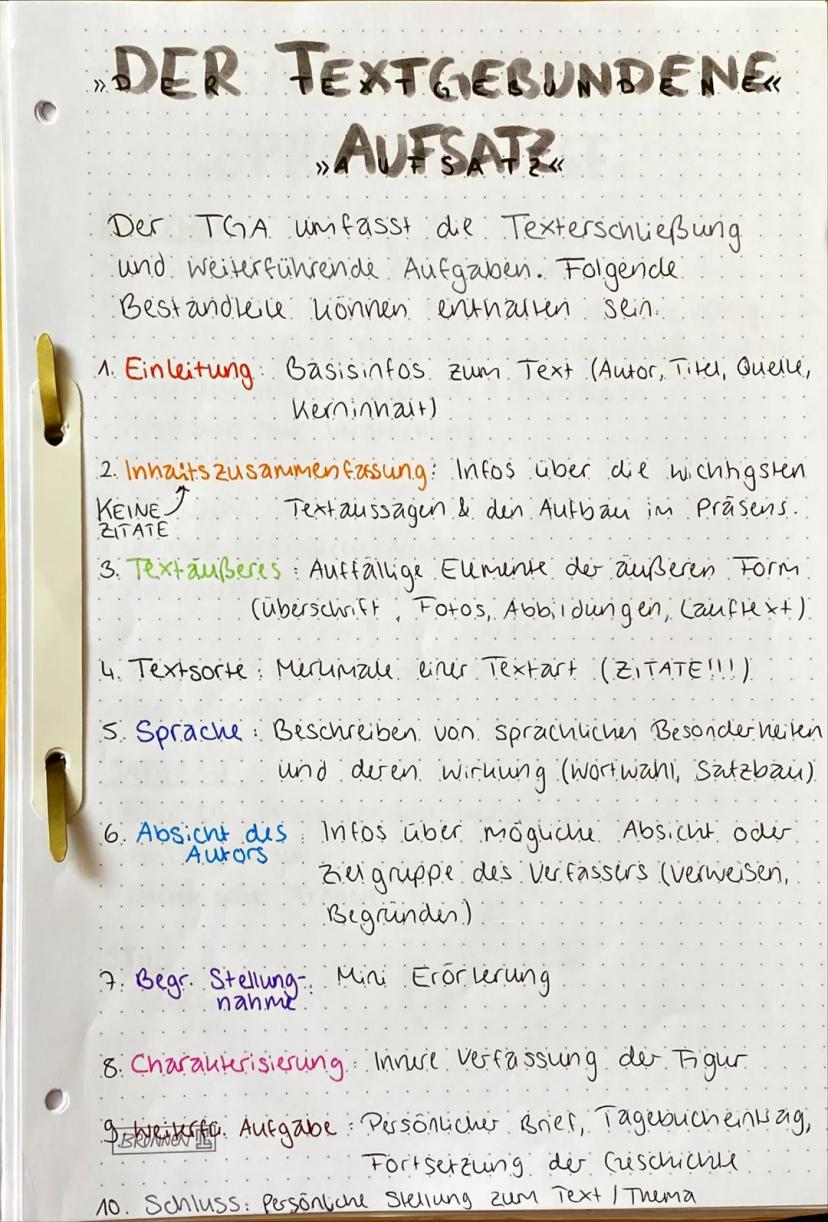 »DER TEXTGEBUNDENE«
»AUFSATZ«
Der TGA umfasst die Texterschließung
und weiterführende Aufgaben. Folgende
Bestandteile können enthalten sein.
1. Einleitung: Basisinfos zum Text (Autor, Titel, Quelle,
Kerninhalt)
2. Inhaltszusammenfassung: Infos über die wichtigsten
KEINE ZITATE
Textaussagen & den Aufbau im Präsens.
3. Textäußeres: Auffällige Elemente der äußeren Form
(Überschrift, Fotos, Abbildungen, Lauftext)
4. Textsorte: Merkmale einer Textart (ZITATE!!!)
5. Sprache: Beschreiben von sprachlichen Besonderheiten
und deren Wirkung (Wortwahl, Satzbau)
6. Absicht des Autors: Infos über mögliche Absicht oder
Zielgruppe des Verfassers (Verweisen,
Begründen)
7. Begr. Stellung-: Mini Erörterung
nahme
8. Charakterisierung: Innere Verfassung der Figur
9. Weiterfü. Aufgabe: Persönlicher Brief, Tagebucheintrag,
BRUNNEN
Fortsetzung der Geschichte
10. Schluss: Persönliche Stellung zum Text / Thema